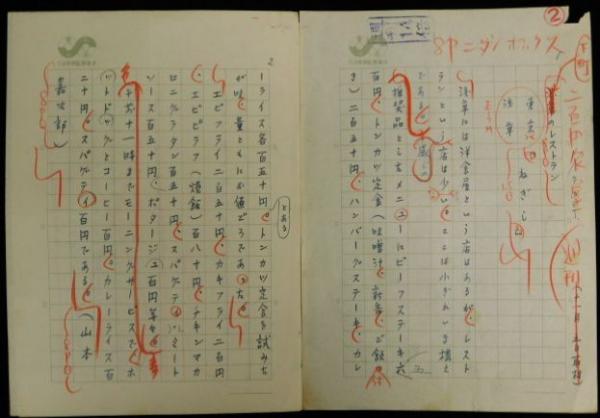 ②
8Pニーダンオックス
下町
二百円家の
週刊
のレストラン
東京 ねぎし
浅草
浅草には洋食屋という店はあるが、レスト
ランという店は少い。ここは小ぎれいな構え
である。
推奨品と云うメニューにビーフステーキ六
百円、トンカツ定食(味噌汁、新香、ご飯付
き)二百五十円、ハンバーグステーキ、カレ
2
ーライス各百五十円とある。トンカツ定食を試みた
が味、量ともにお値どうりであった。
エビフライ二百五十円、カキフライ二百円
、エビピラフ(燻飯)百八十円、チキンマカ
ロニグラタン百五十円、スパゲティミート
ソース百五十円、ポタージュ百円等々。
午前十一時までモーニングサービスで、ホ
ットドッグとコーヒー百円、カレーライス百
二十円、スパゲティ百円である。(山本
嘉次郎)